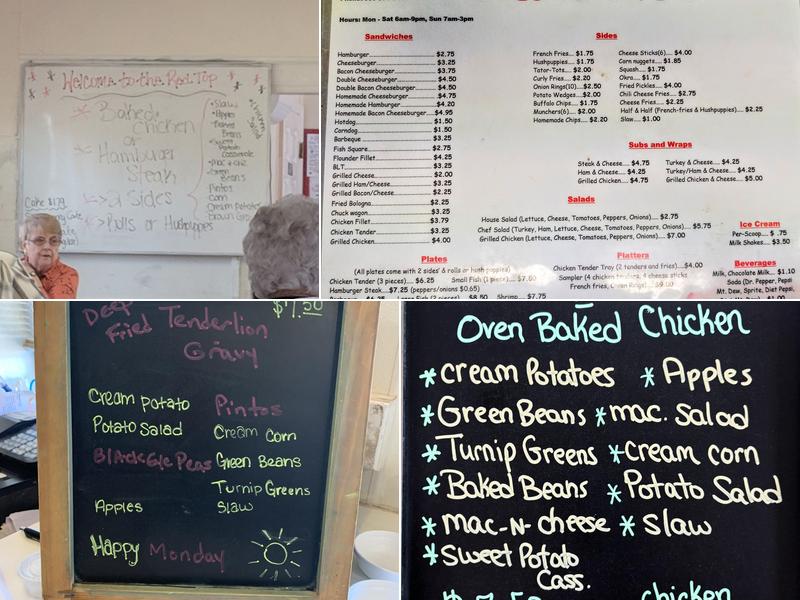 Welcome to the Red Top
Baked
chicken
or
Hamburger
Steak
2 Sides
Rolls or Hushpuppies
Slaw
Apples
Baked
Beans
Sweet
Potato
Casserole
Mac + Che
Green
Beans
Pintos
Corn
Cream Potatoes
Brown Gra
Chicken
Salad
Cake $1.79
Hours: Mon - Sat 6am-9pm, Sun 7am-3pm
Sandwiches
Hamburger $2.75
Cheeseburger $3.25
Bacon Cheeseburger $3.75
Double Cheeseburger $4.50
Double Bacon Cheeseburger $4.50
Homemade Cheeseburger $4.75
Homemade Hamburger $4.20
Homemade Bacon Cheeseburger $4.95
Hotdog $1.50
Corndog $1.50
Barbeque $3.25
Fish Square $2.75
Flounder Fillet $4.25
BLT $3.25
Grilled Cheese $2.00
Grilled Ham/Cheese $3.25
Grilled Bacon/Cheese $2.25
Fried Bologna $2.25
Chuck wagon $3.25
Chicken Fillet $3.79
Chicken Tender $3.25
Grilled Chicken $4.00
Sides
French Fries.... $1.75
Hushpuppies... $1.75
Tator-Tots.... $2.00
Curly Fries.... $2.20
Onion Rings(10)...$2.50
Potato Wedges... $2.00
Buffalo Chips... $1.75
Munchers(6)... $2.00
Homemade Chips... $2.20
Cheese Sticks(6)... $4.00
Corn nuggets... $1.85
Squash... $1.75
Okra.... $1.75
Fried Pickles.... $4.00
Chili Cheese Fries... $2.75
Cheese Fries... $2.25
Half & Half (French-fries & Hushpuppies)... $2.25
Slaw.... $1.00
Subs and Wraps
Steak & Cheese... $4.75
Ham & Cheese... $4.25
Grilled Chicken.... $4.75
Turkey & Cheese.... $4.25
Turkey/Ham & Cheese... $4.25
Grilled Chicken & Cheese... $5.00
Salads
House Salad (Lettuce, Cheese, Tomatoes, Peppers, Onions)... $2.75
Chef Salad (Turkey, Ham, Lettuce, Cheese, Tomatoes, Peppers, Onions)... $5.75
Grilled Chicken (Lettuce, Cheese, Tomatoes, Peppers, Onions)... $7.00
Ice Cream
Per-Scoop.... $ .75
Milk Shakes.... $3.50
Plates
(All plates come with 2 sides' & rolls or hush puppies)
Chicken Tender (3 pieces)... $6.25
Small Fish (1 piece)... $7.50
Hamburger Steak...$7.25 (peppers/onions $0.65)
$6.25
Large Fish (2 pieces)
$8.50
Shrimp... $7.75
Platters
Chicken Tender Tray (2 tenders and fries)....$4.00
Sampler (4 chicken tenders, 4 cheese sticks
French fries, Onion Rings)... $9.00
Beverages
Milk, Chocolate Milk... $1.10
Soda (Dr. Pepper, Pepsi
Mt. Dew, Sprite, Diet Pepsi,
Deep $7.50
Fried Tenderlion
Gravy
Cream potato
Potato Salad
Black Eye Peas
Apples
Pintos
Cream Corn
Green Beans
Turnip Greens
Slaw
Happy Monday
Oven Baked Chicken
* cream Potatoes * Apples
* Green Beans * mac. Salad
* Turnip Greens * cream corn
* Baked Beans * Potato Salad
* mac-N-cheese * slaw
* sweet Potato
Cass.
chicken